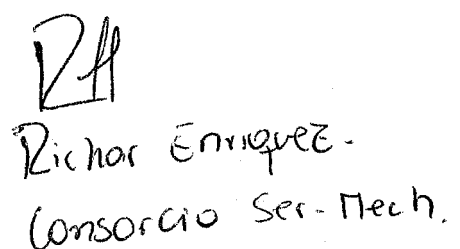 Richar Enriquez.
Consorcio Ser-Mech.